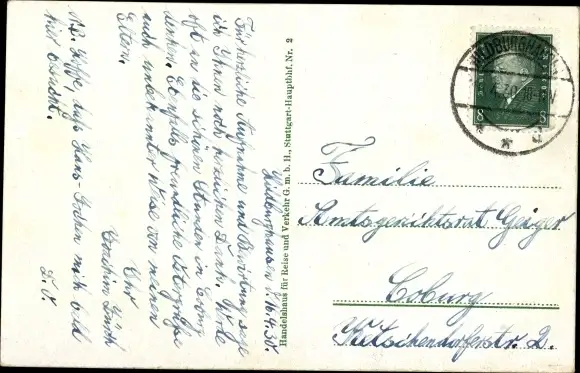 Hildburghausen d. 16.4.30.
Für herzliche Aufnahme und Bewirtung sage
ich Ihnen noch herzlichen Dank. Werde
oft an die schönen Stunden in Coburg
denken. Ebenfalls freundliche Ostergrüße
auch unbekannter Weise von meinen
Eltern.
Ihr
Joachim
N.B. Hoffe, daß Hans-Jochen mich bald
mit besucht.
D. O.
Handelshaus für Reise und Verkehr G. m. b. H., Stuttgart-Hauptbhf. Nr. 2
HILDBURGHAUSEN
8 8
Familie
Amtsgerichtsrat Geiger
Coburg
Ketschendorferstr. 2.